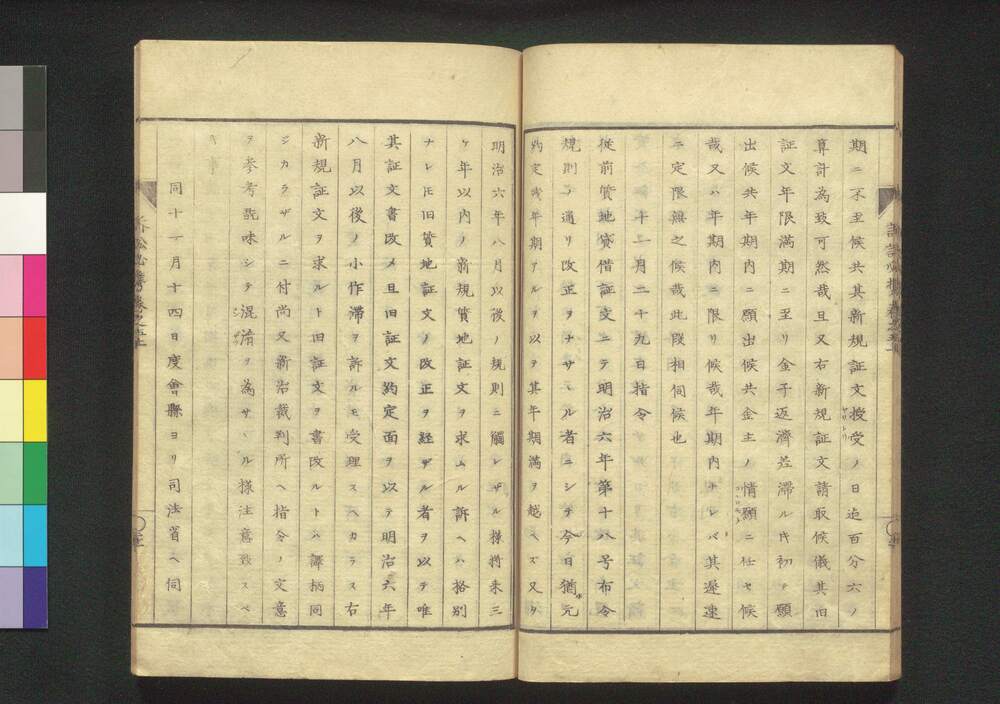 期ニ不至候共其新規証文授受ノ日迄百分六ノ
算計為致可然哉且又右新規証文請取候儀其旧
証文年限満期ニ至リ金子返済差滞ル片初テ願
出候共年期内ニ願出候共金主ノ情願ニ任セ候
哉又ハ年期内ニ限リ候哉年期内ナレバ其遅速
ニ定限無之候哉此段相伺候也
十二月二十九日指令
従前質地貸借証文ニテ明治六年第十八号布令
規則ノ通リ改正ヲナサヾル者ニシテ今日猶元
約定ノ年期アルヲ以ヲ其年期満ヲ越ヘズ又タ
明治六年八月以後ノ規則ニ觸レザル様将来三
ケ年以内ノ新規質地証文ヲ求ムル訴ヘハ格別
ナレ𪜈旧質地証文ノ改正ヲ経ザル者ヲ以テ唯
其証文書改メ且旧証文約定面ヲ以テ明治六年
八月以後ノ小作滞ヲ訴ルモ受理スヘカラス右
新規証文ヲ求ルト旧証文ヲ書改ルトハ譯柄同
シカラザルニ付尚又新治裁判所ヘ指令ノ文意
ヲ参考玩味シテ混淆ヲ為サヾル様注意致スベ
同十一月十四日度會縣ヨリ司法省ヘ伺